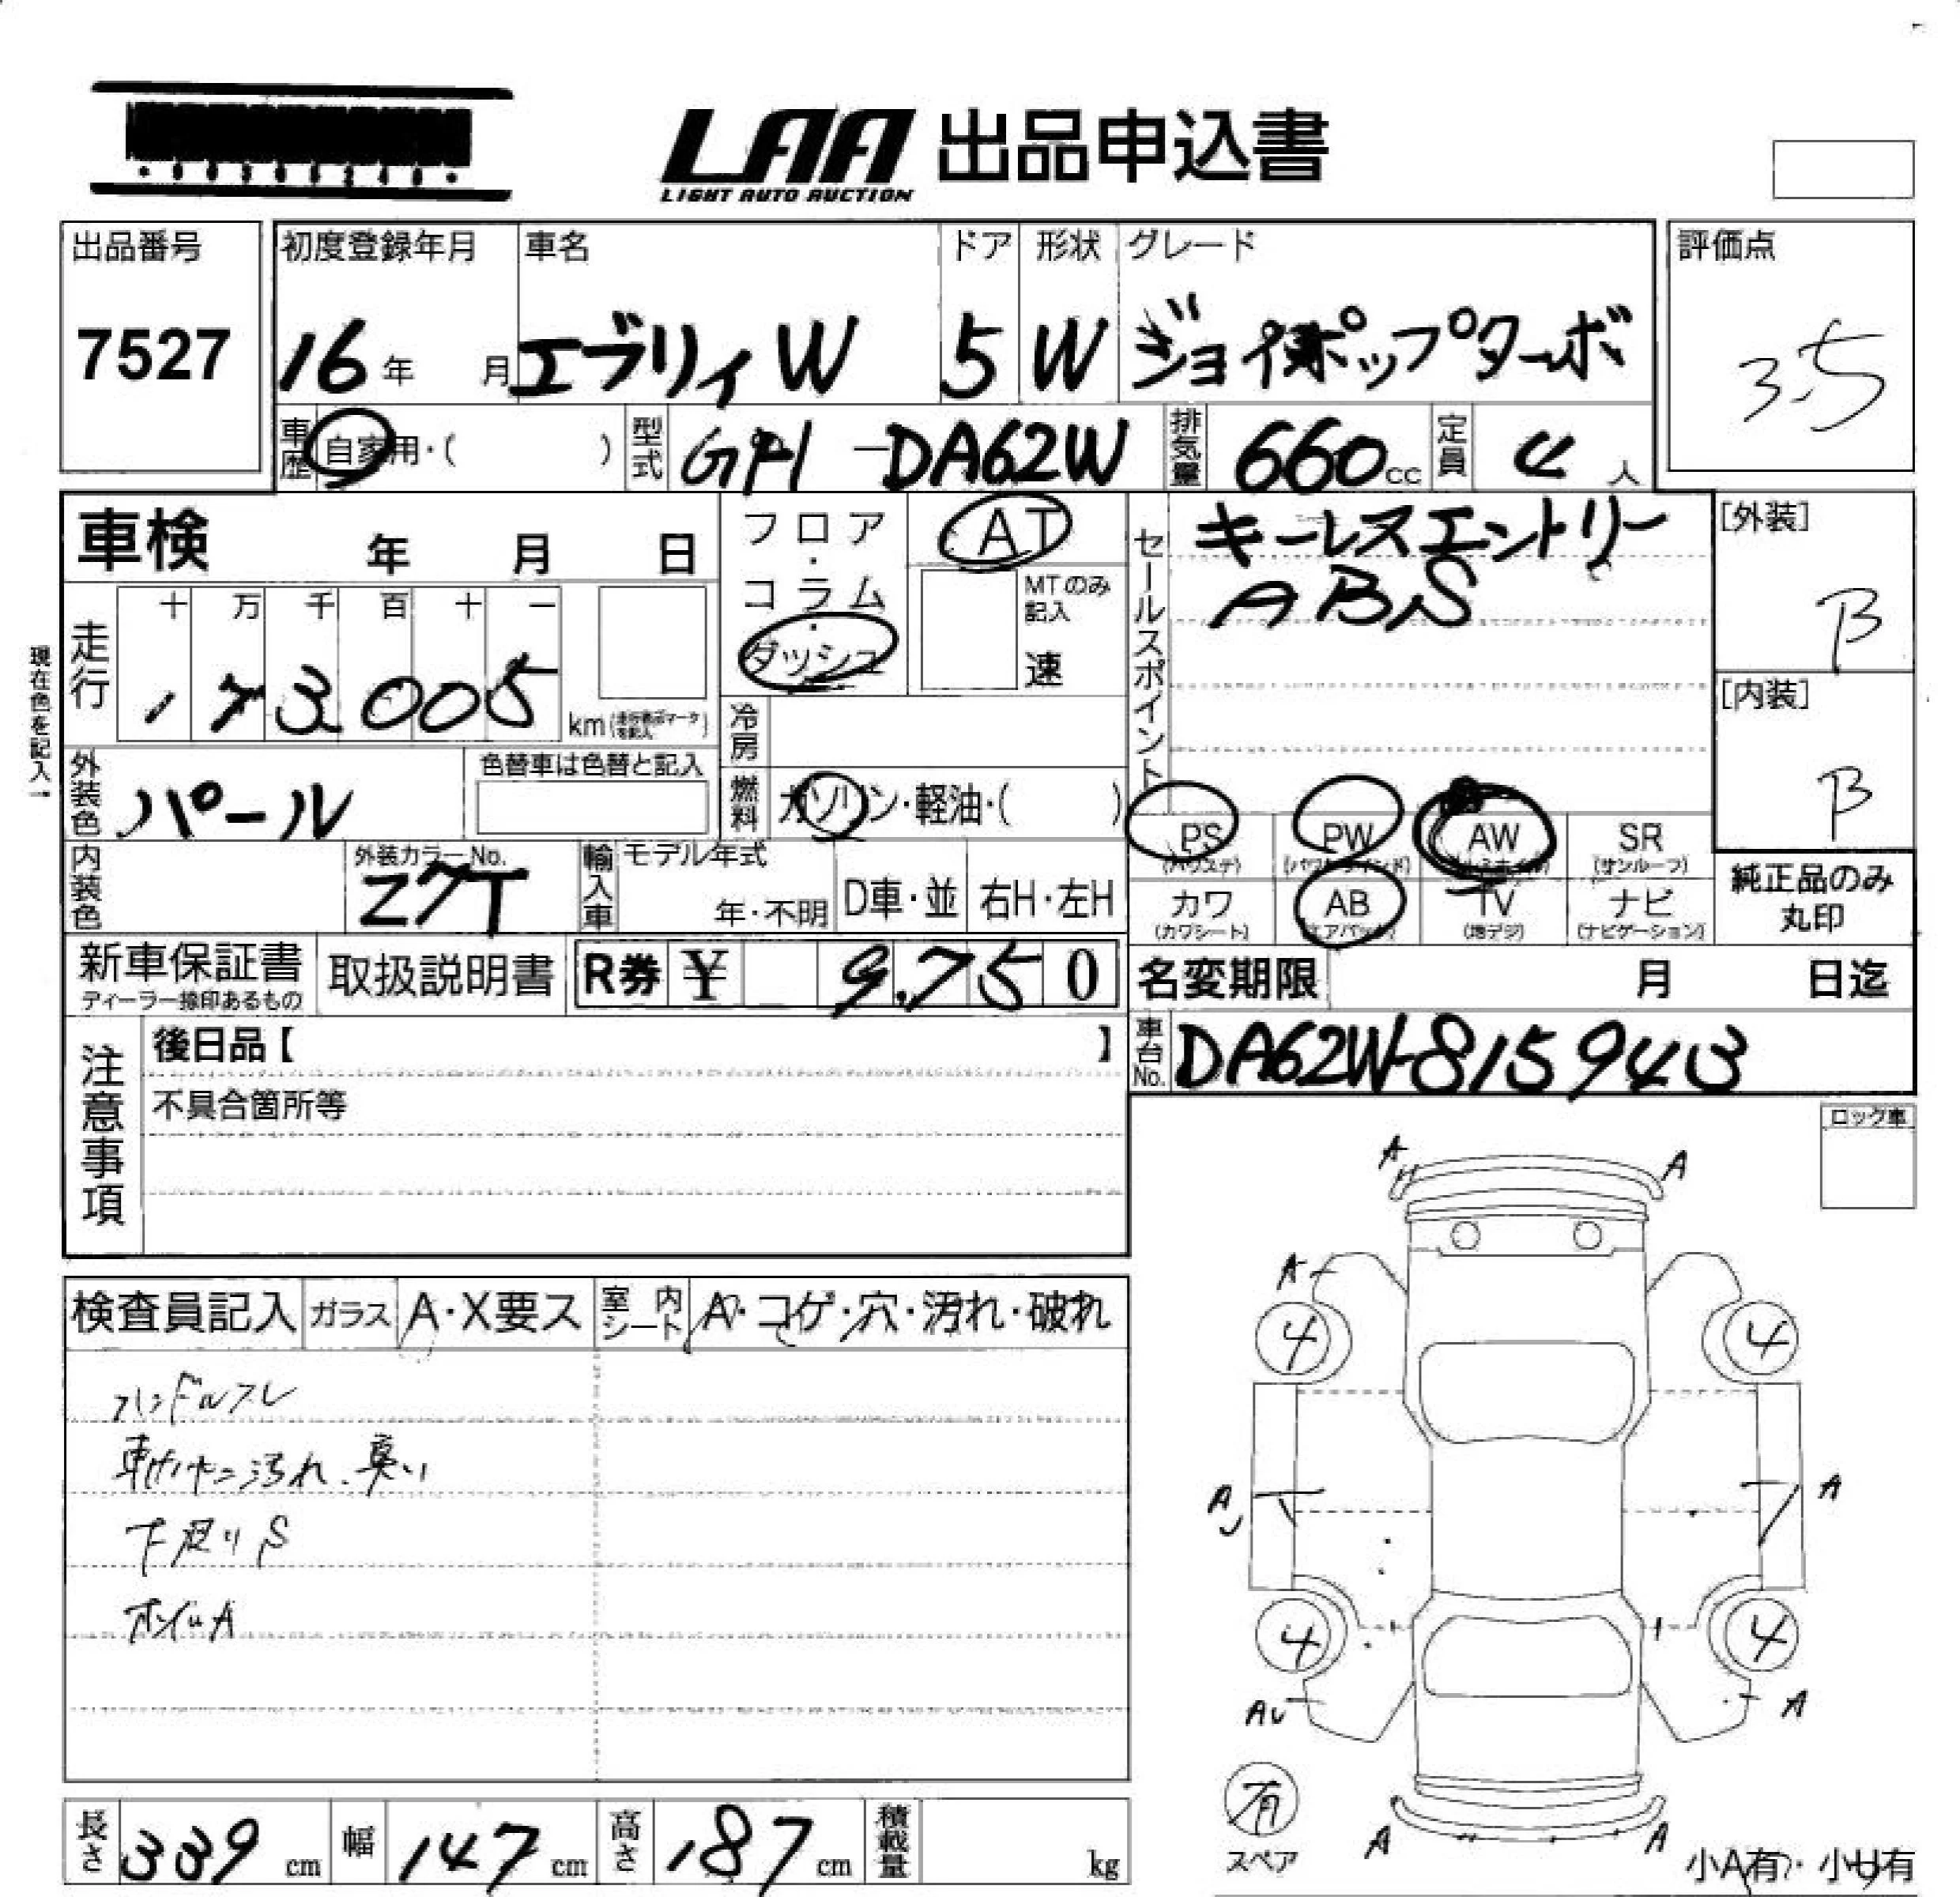 LAA 出品申込書
LIGHT AUTO AUCTION
出品番号
7527
初度登録年月 車名 ドア 形状 グレード
16年 月 エブリィW 5 W ジョイポップターボ
評価点
3.5
車歴 自家用・( ) 型式 -DA62W 排気量 660cc 定員 4人
車検 年 月 日
フロア・コラム・ダッシュ
AT
MTのみ記入
速
セールスポイント
キーレスエントリー
ABS
[外装]
B
[内装]
B
現在色を記入
走行
十 万 千 百 十 一
173005 km
冷房
外装色 パール
色替車は色替と記入
燃料 ガソリン・軽油・( )
PS PW AW SR
(パワステ) (パワーウインド) (サンルーフ)
カワ AB TV ナビ
(カワシート) (エアバッグ) (地デジ) (ナビゲーション)
純正品のみ
丸印
内装色
外装カラーNo.
Z7T
輸入車
モデル年式
年・不明 D車・並 右H・左H
新車保証書 取扱説明書 R券 ¥ 9,750
ディーラー捺印あるもの
名変期限 月 日迄
車台No. DA62W-815943
注意事項
後日品【 】
不具合箇所等
ロック車
検査員記入 ガラス A・X要ス 室内シート A・コゲ・穴・汚れ・破れ
ハンドルスレ
汚れ、臭い
下廻りS
ホイルA
A A
A
4 4
A A
4 4
AU A
有
スペア
A A
小A有・小U有
長さ 339 cm 幅 147 cm 高さ 187 cm 積載量 kg